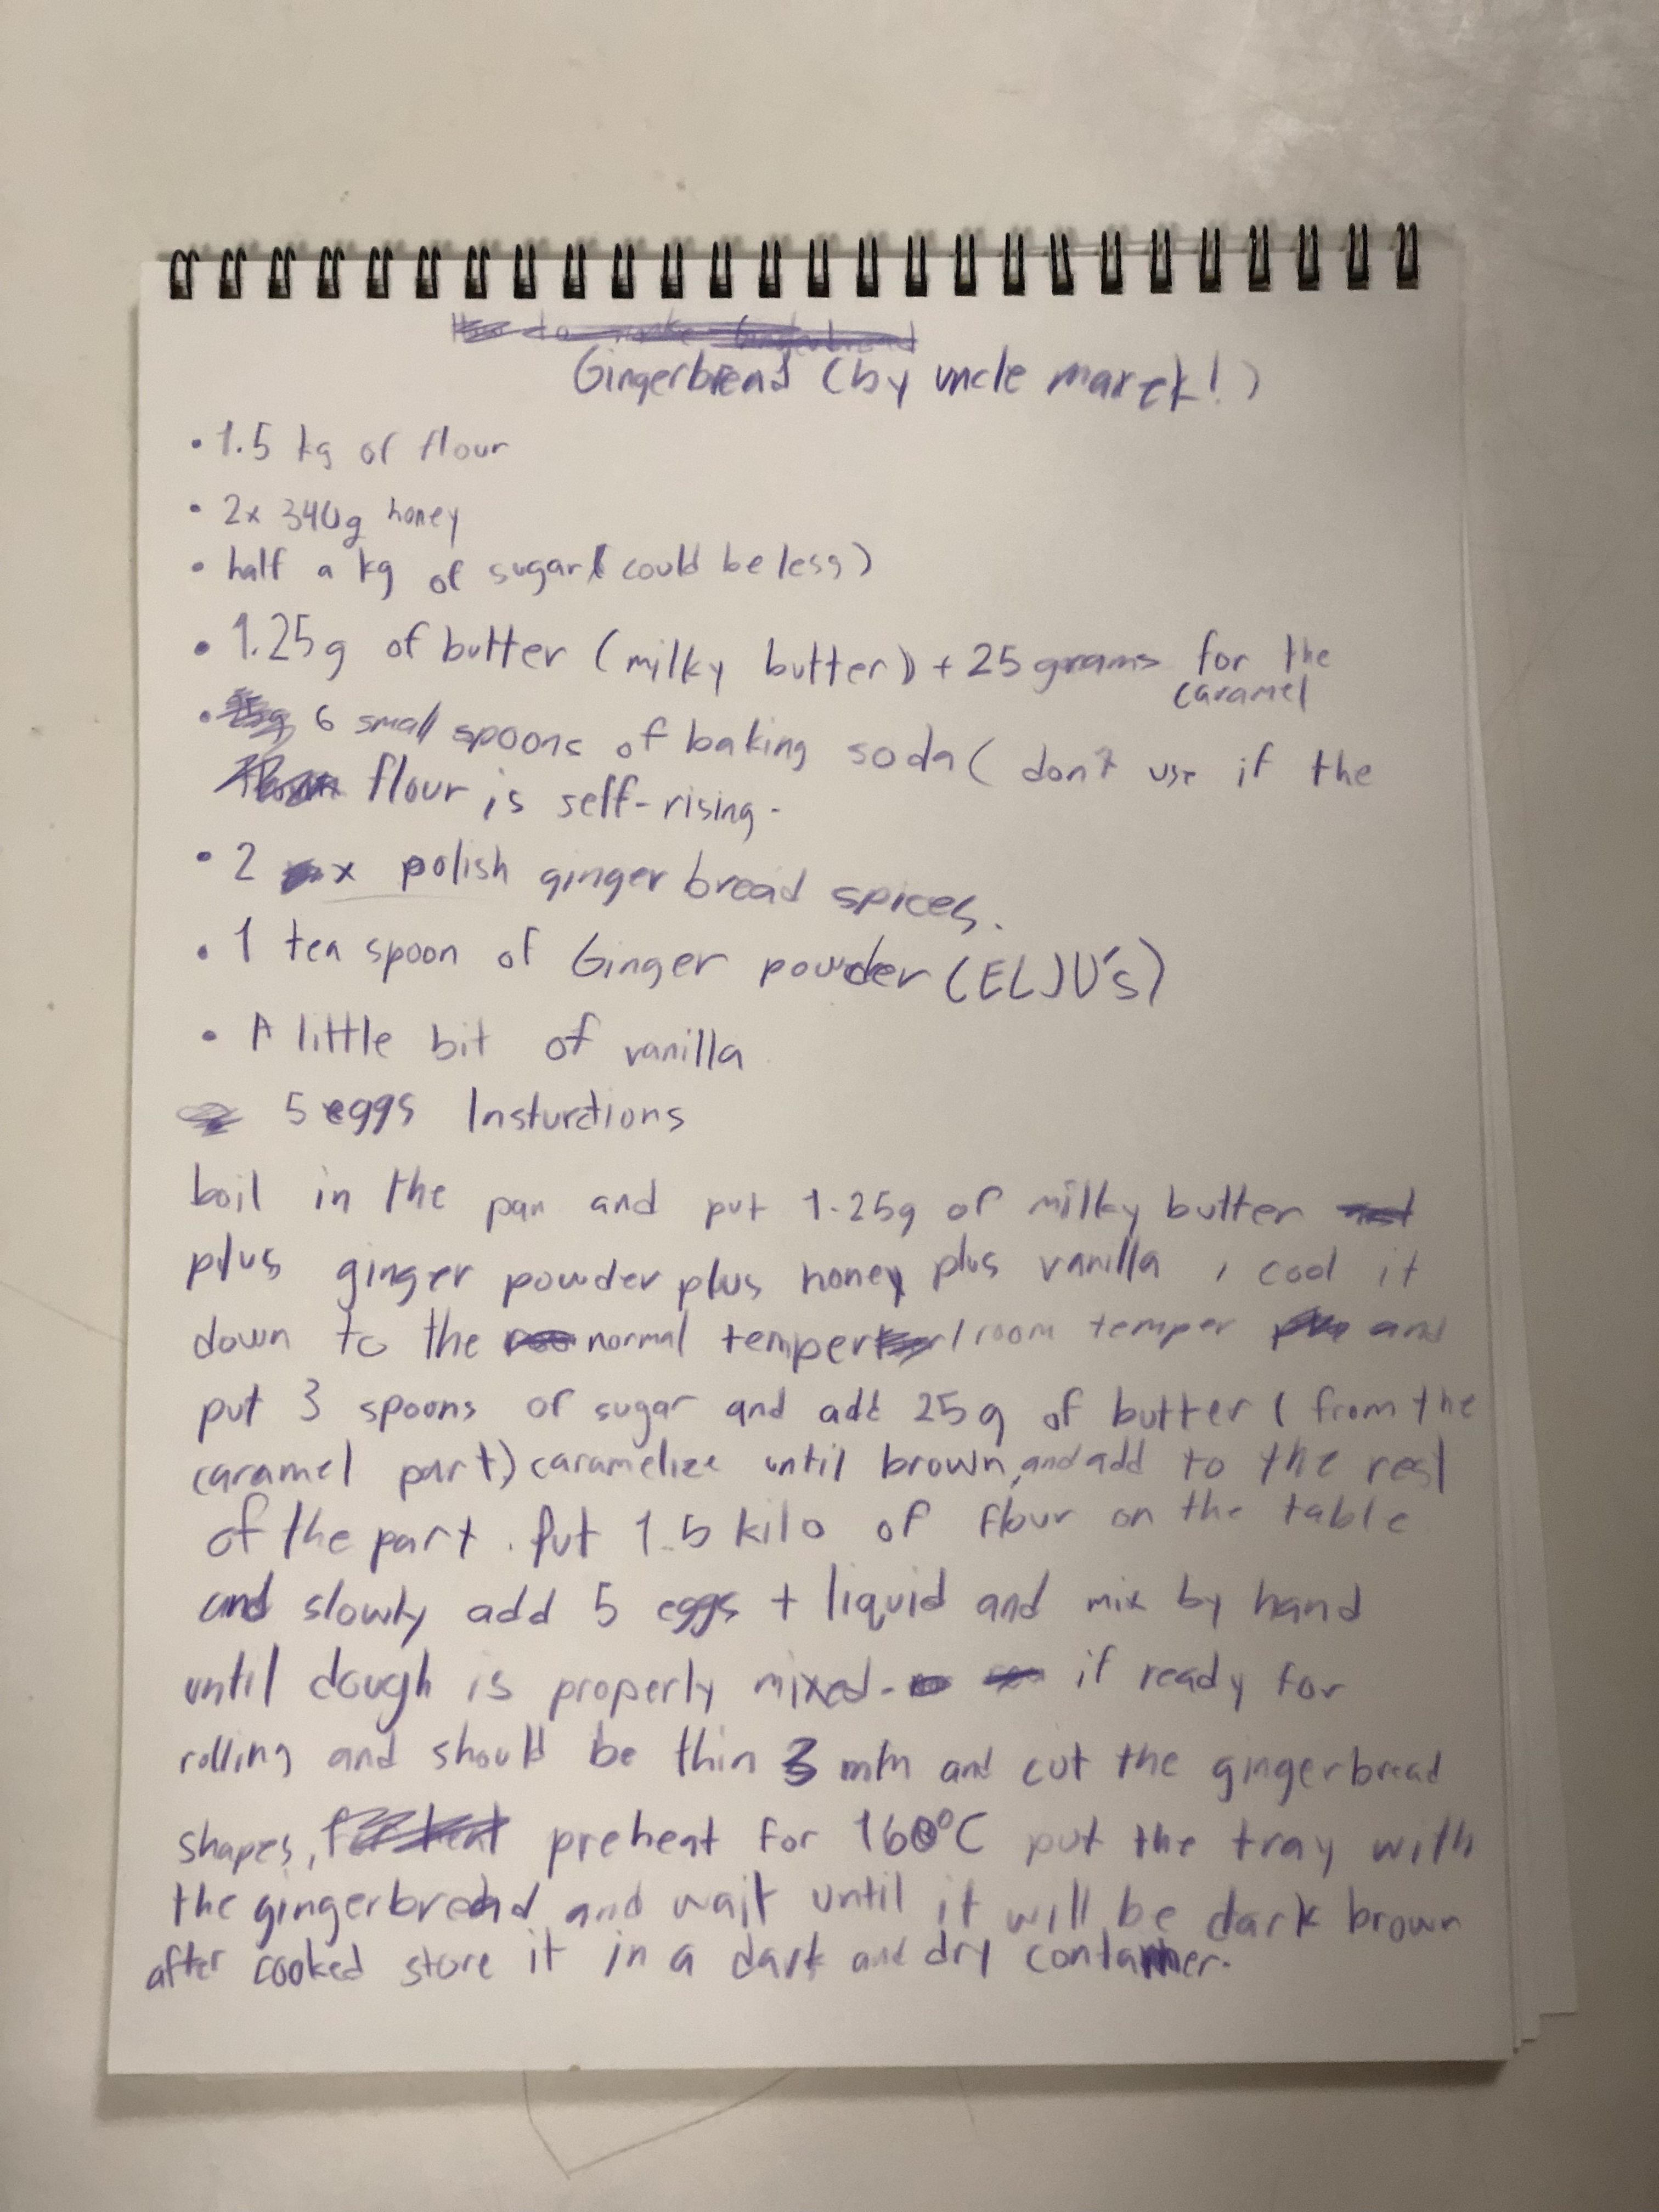 How to make Gingerbread
Gingerbread (by uncle marek!)
• 1.5 kg of flour
• 2x 340g honey
• half a kg of sugar (could be less)
• 1.25g of butter (milky butter) + 25 grams for the
caramel
• 6 small spoons of baking soda ( don't use if the
flour is self-rising.
• 2 x polish ginger bread spices.
• 1 tea spoon of Ginger powder (ELJU's)
• A little bit of vanilla
5 eggs Insturctions
boil in the pan and put 1.25g of milky butter
plus ginger powder plus honey plus vanilla , cool it
down to the normal temper / room temper and
put 3 spoons of sugar and add 25g of butter ( from the
caramel part) caramelize until brown, and add to the rest
of the part . Put 1.5 kilo of flour on the table
and slowly add 5 eggs + liquid and mix by hand
until dough is properly mixed. if ready for
rolling and should be thin 3 mm and cut the gingerbread
shapes, preheat for 160°C put the tray with
the gingerbread and wait until it will be dark brown
after cooked store it in a dark and dry container.